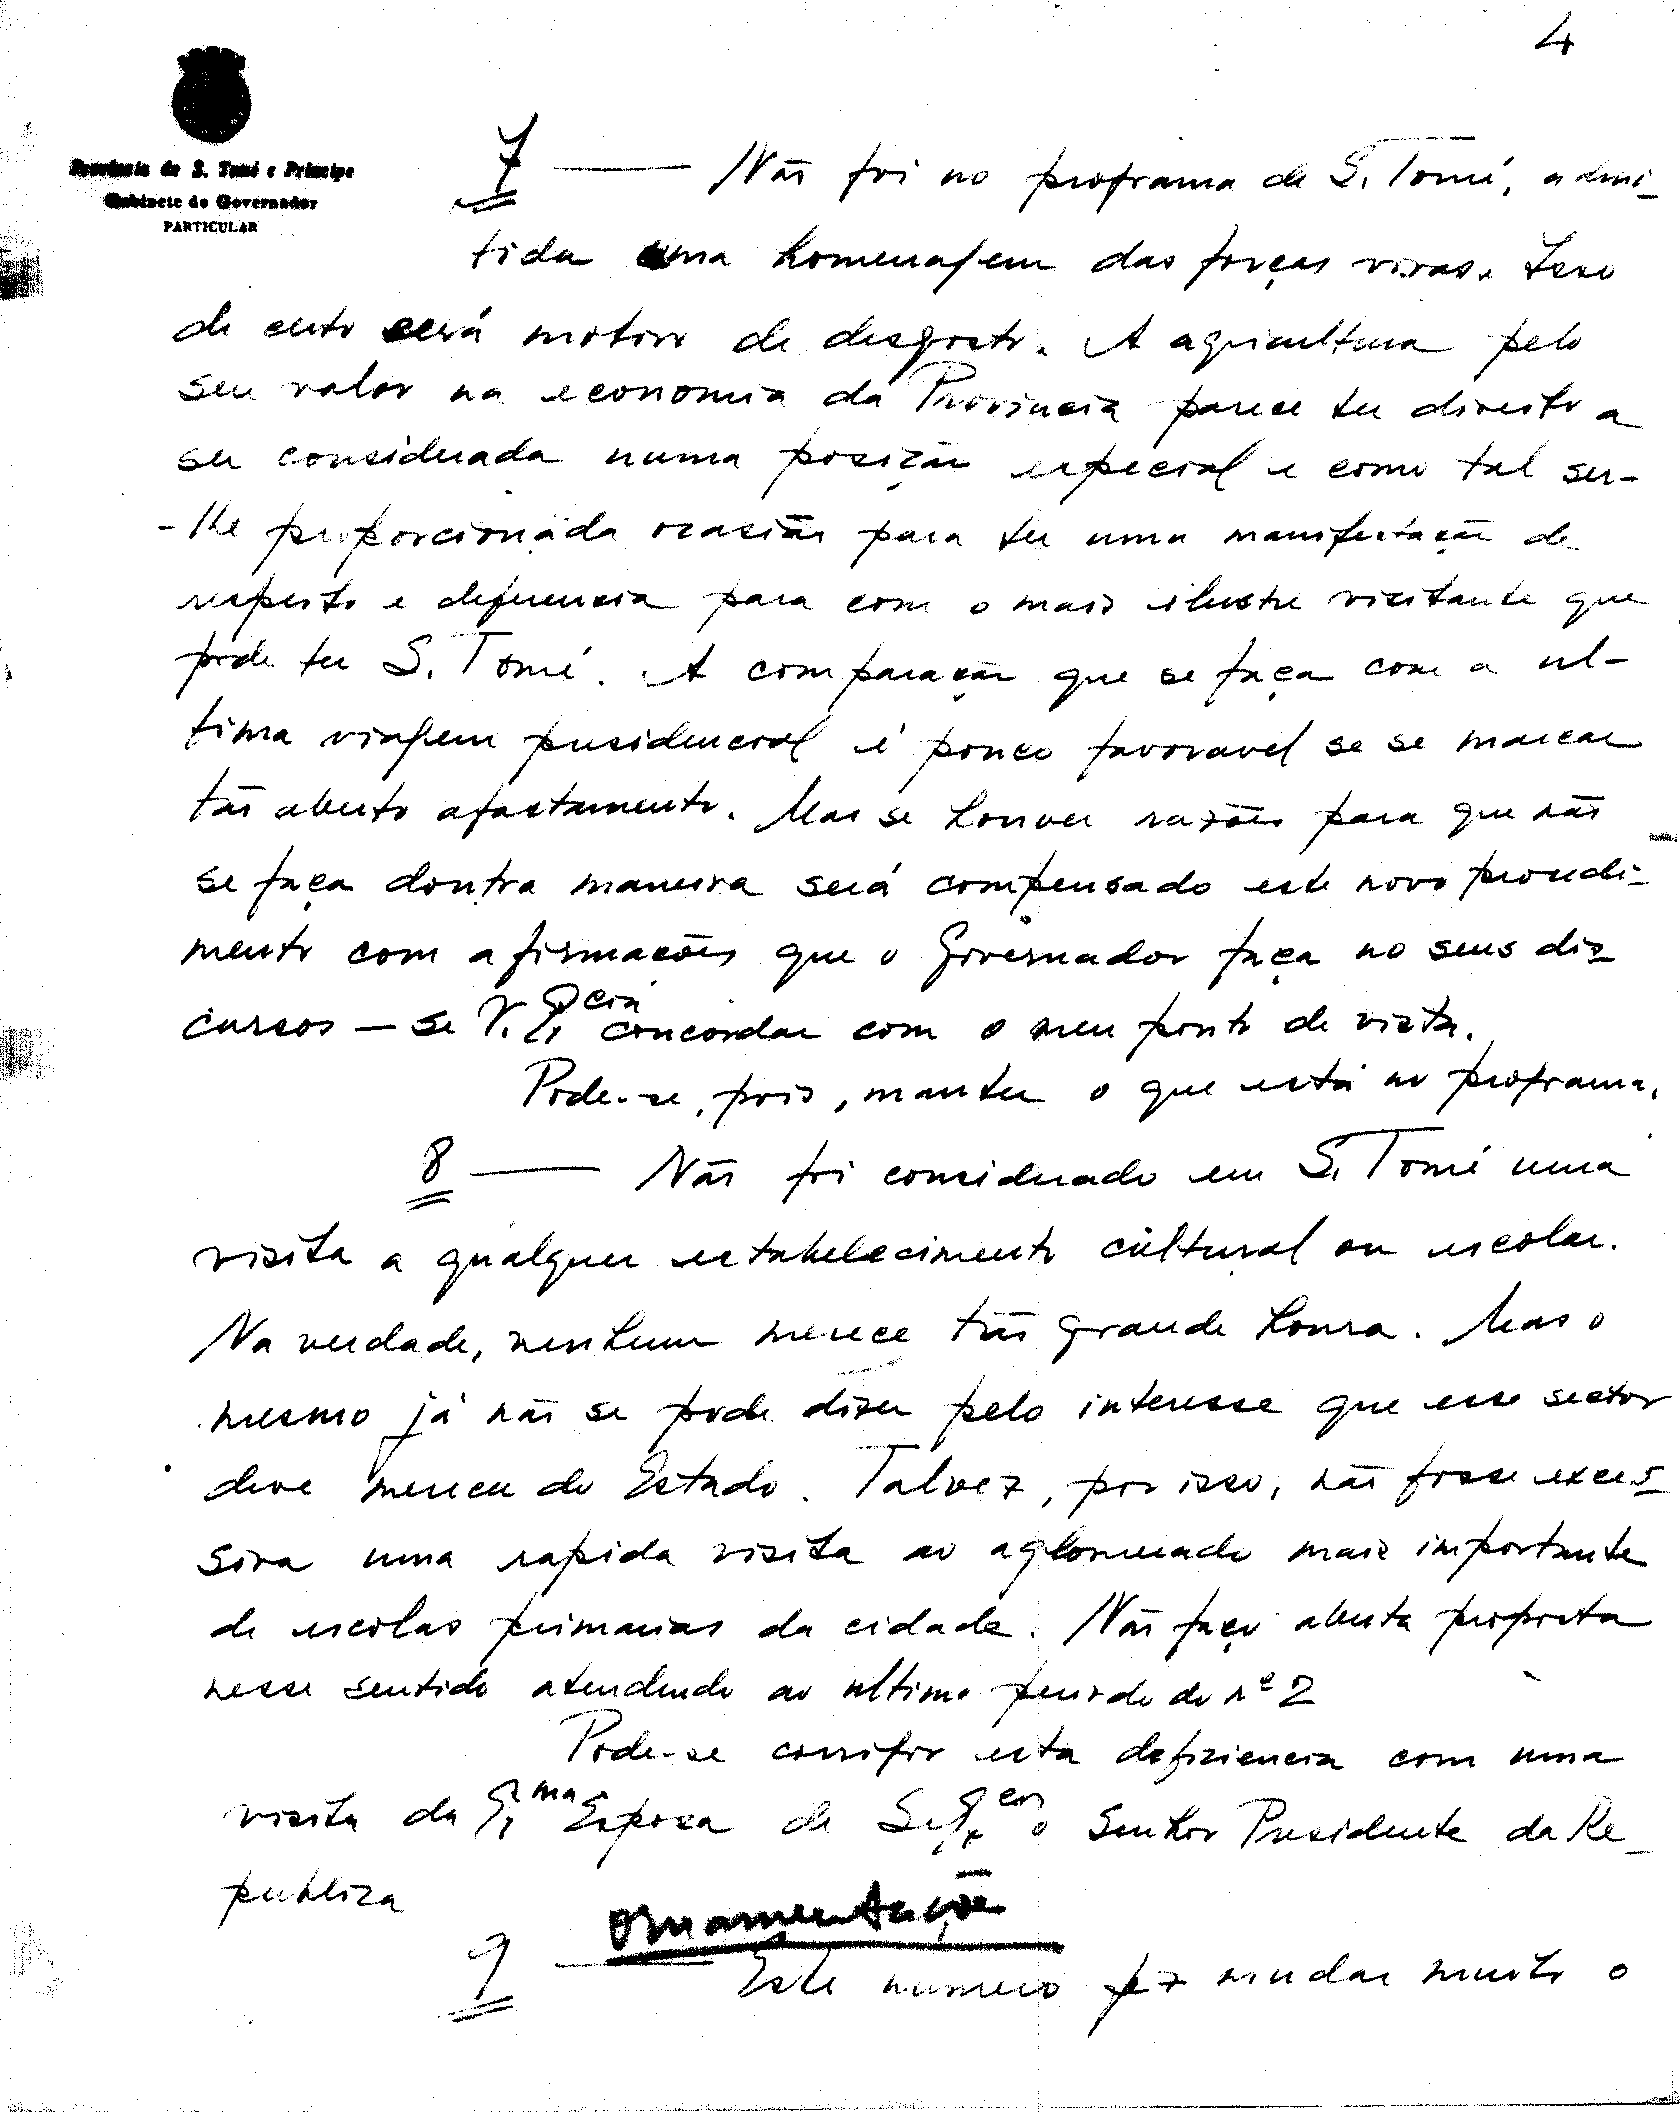 4
Província de S. Tomé e Príncipe
Gabinete do Governador
PARTICULAR
7 — Não foi no programa de S. Tomé, admi-
tida uma homenagem das forças vivas. Isso
de certo será motivo de desgosto. A agricultura pelo
seu valor na economia da Provincia parece ter direito a
ser considerada numa posição especial e como tal ser-
-lhe proporcionada ocasião para ter uma manifestação de
respeito e deferencia para com o mais ilustre visitante que
pode ter S. Tomé. A comparação que se faça com a ul-
tima viagem presidencial é pouco favoravel se se marcar
tão aberto afastamento. Mas se houver razões para que não
se faça doutra maneira será compensado este novo procedi-
mento com afirmações que o Governador faça no seus dis-
cursos — se V. Ex.cia concordar com o meu ponto de vista.
Pode-se, pois, manter o que está no programa.
8 — Não foi considerado em S. Tomé uma
visita a qualquer estabelecimento cultural ou escolar.
Na verdade, nenhum merece tão grande honra. Mas o
mesmo já não se pode dizer pelo interesse que esse sector
deve merecer do Estado. Talvez, por isso, não fosse exces-
siva uma rapida visita ao aglomerado mais importante
de escolas primarias da cidade. Não faço aberta proposta
nesse sentido atendendo ao ultimo periodo do nº 2
Pode-se corrigir esta deficiencia com uma
visita da Ex.ma Esposa de S. Ex.cia o Senhor Presidente da Re-
publica
Ornamentação
9 — Este numero fez mudar muito o